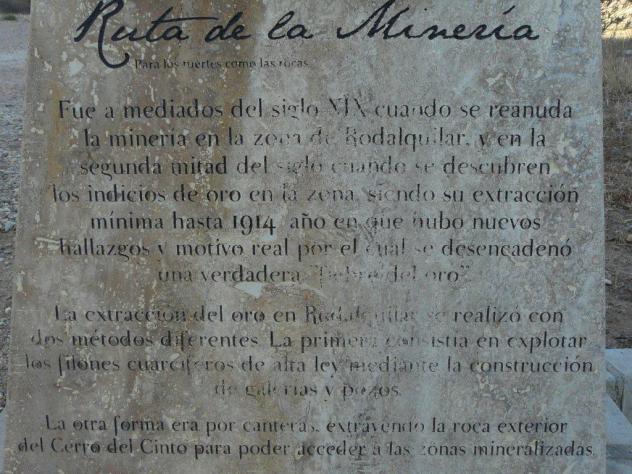 Ruta de la Minería
Para los fuertes como las rocas
Fue a mediados del siglo XIX cuando se reanuda
la minería en la zona de Rodalquilar, y en la
segunda mitad del siglo cuando se descubren
los indicios de oro en la zona, siendo su extracción
mínima hasta 1914, año en que hubo nuevos
hallazgos y motivo real por el cual se desencadenó
una verdadera "fiebre del oro".
La extracción del oro en Rodalquilar se realizó con
dos métodos diferentes. La primera consistía en explotar
los filones cuarcíferos de alta ley mediante la construcción
de galerías y pozos.
La otra forma era por canteras, extrayendo la roca exterior
del Cerro del Cinto para poder acceder a las zonas mineralizadas.